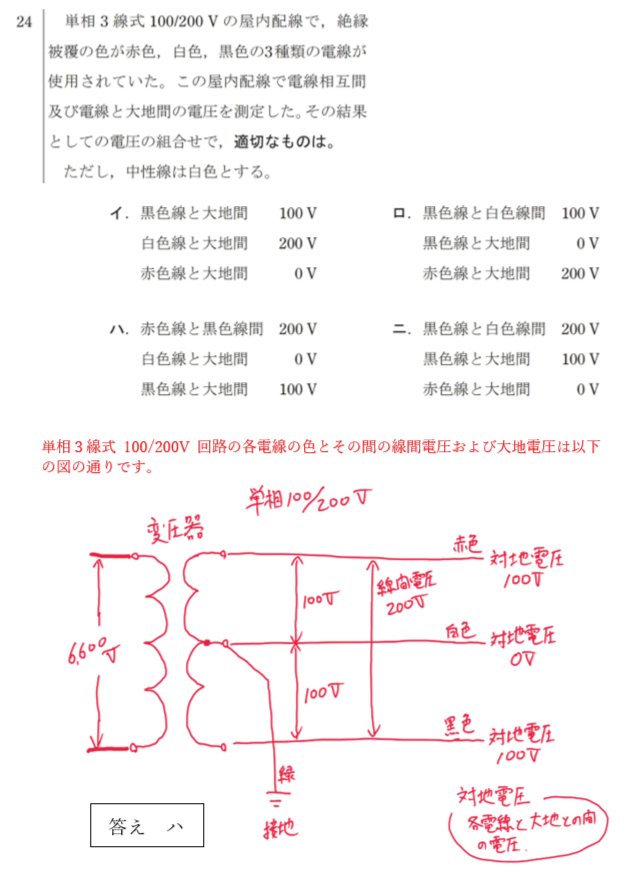 24 単相3線式 100/200 V の屋内配線で，絶縁
被覆の色が赤色，白色，黒色の3種類の電線が
使用されていた。この屋内配線で電線相互間
及び電線と大地間の電圧を測定した。その結果
としての電圧の組合せで，適切なものは。
ただし，中性線は白色とする。
イ．黒色線と大地間 100 V
白色線と大地間 200 V
赤色線と大地間 0 V
ロ．黒色線と白色線間 100 V
黒色線と大地間 0 V
赤色線と大地間 200 V
ハ．赤色線と黒色線間 200 V
白色線と大地間 0 V
黒色線と大地間 100 V
ニ．黒色線と白色線間 200 V
黒色線と大地間 100 V
赤色線と大地間 0 V
単相３線式 100/200V 回路の各電線の色とその間の線間電圧および大地電圧は以下
の図の通りです。
単相100/200V
変圧器
赤色
対地電圧
100V
線間電圧
200V
100V
6,600
V
白色
対地電圧
0V
100V
黒色
対地電圧
100V
緑
接地
対地電圧
各電線と大地との間
の電圧.
答え ハ